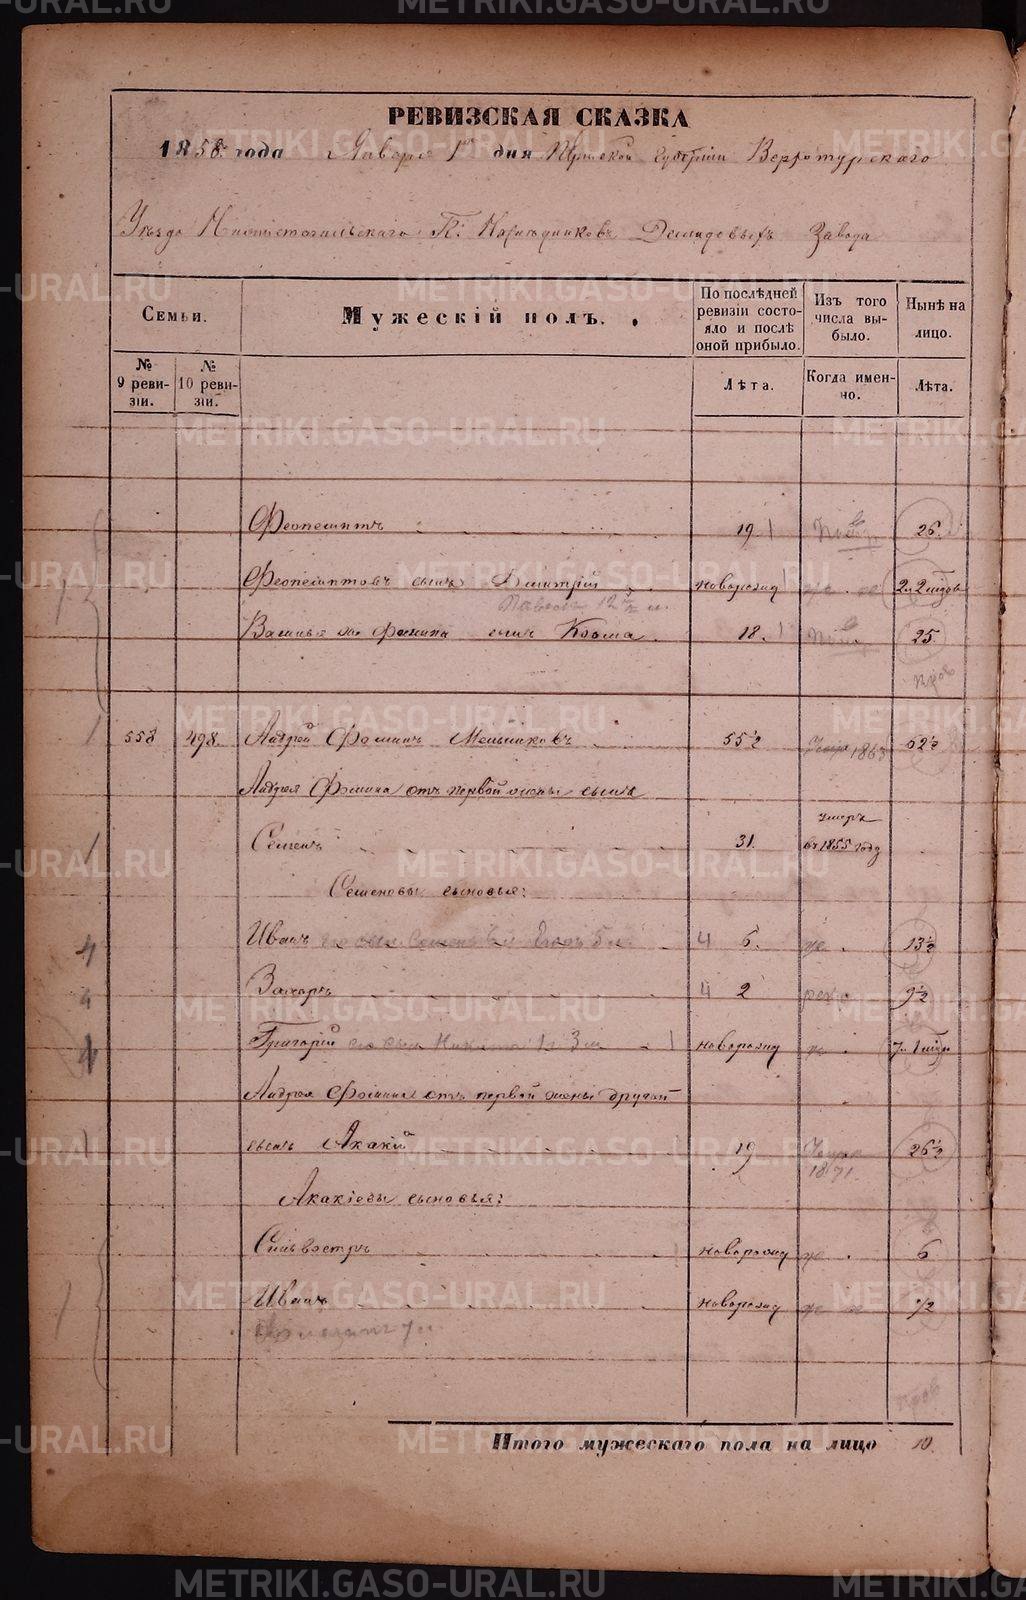 РЕВИЗСКАЯ СКАЗКА
1858 года Января 1 дня Пермской Губернии Верхотурскаго
Уѣзда П: Наслѣдниковъ Демидовыхъ Завода
Семьи.
Мужескій полъ.
По послѣдней ревизіи состояло и послѣ оной прибыло.
Изъ того числа выбыло.
Нынѣ на лицо.
№ 9 ревизіи.
№ 10 ревизіи.
Лѣта.
Когда именно.
Лѣта.
Феопемптъ 19 26.
Феопемптовъ сынъ Дмитрій новорожд
Павелъ 12
сынъ Козьма 18. 25
558 498. Андрей Фоминъ Мельниковъ 55½ 1863 62½
Андрея Фомина отъ первой жены сынъ
Семенъ 31. умеръ въ 1855 году
Семеновы сыновья:
Иванъ 4 6. 13½
Захаръ 4 2 9½
Григорій новорожд
Андрея Фомина отъ первой жены другой
сынъ Акакій 19 1871 26½
Акакіевы сыновья:
Сильвестръ новорожд 6
Иванъ новорожд ½
Итого мужескаго пола на лицо 10.
METRIKI.GASO-URAL.RU